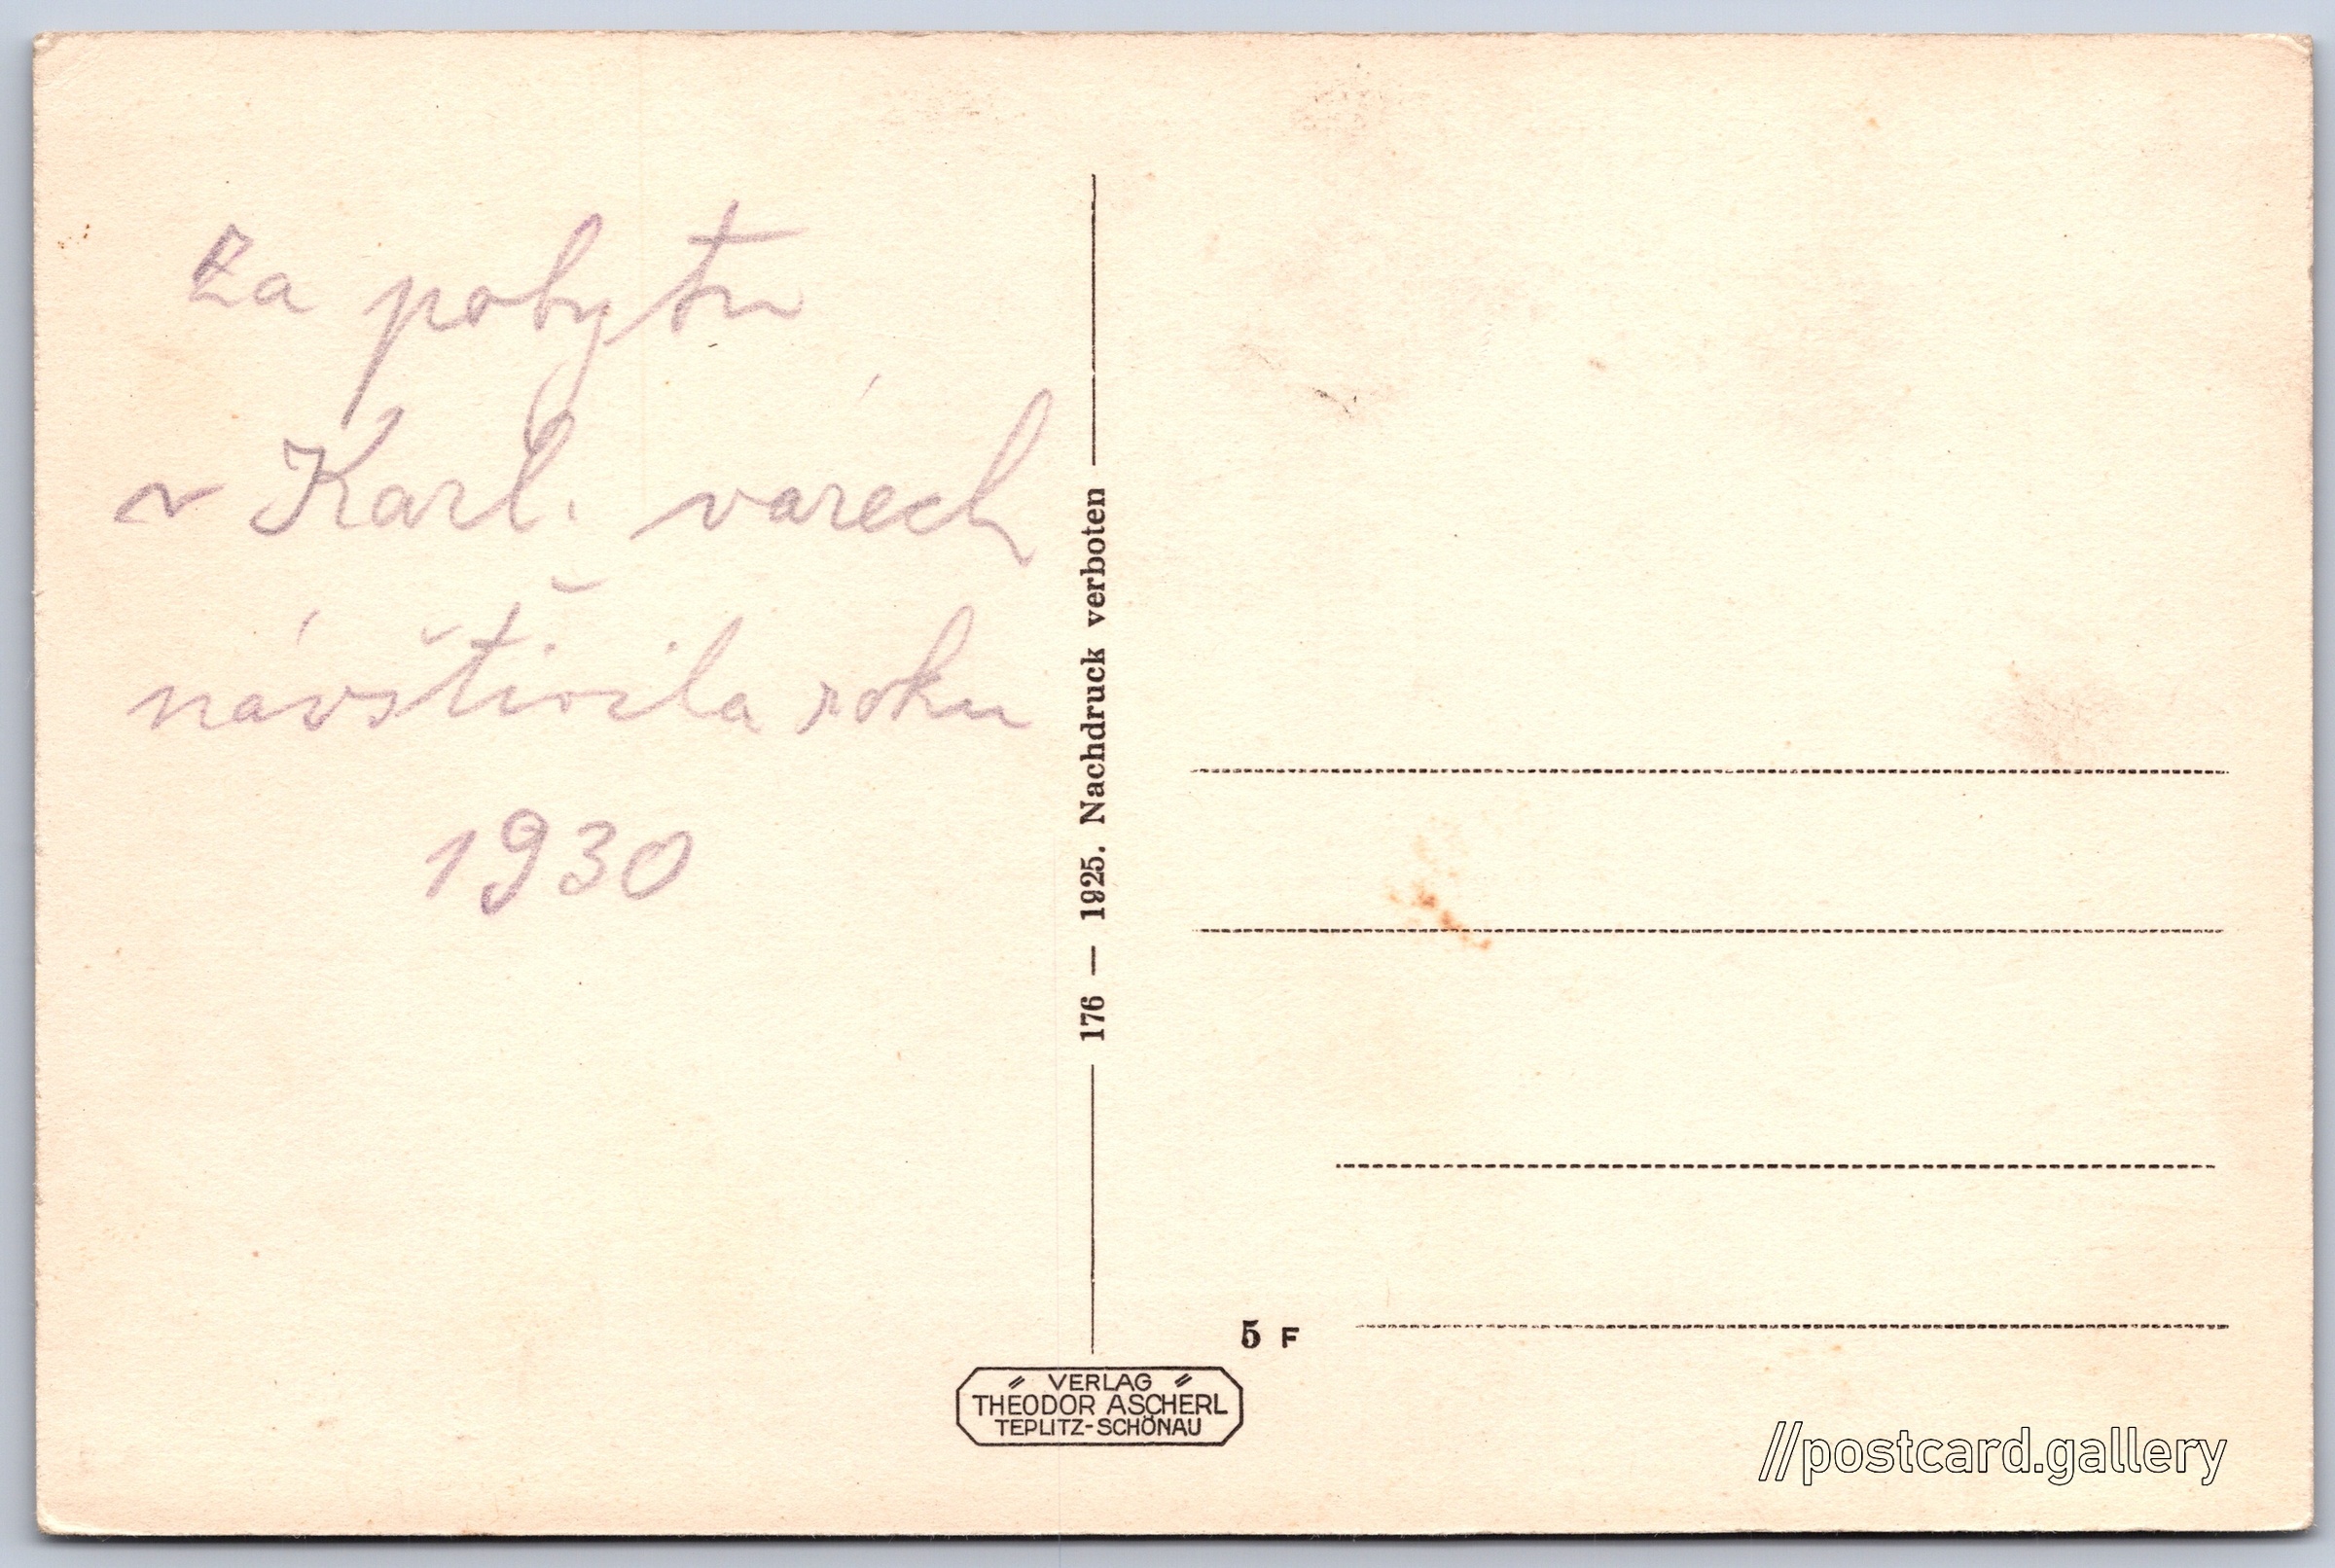 Za pobytu
v Karl. várech
návštívila roku
1930
176 — 1925. Nachdruck verboten
5 F
VERLAG
THEODOR ASCHERL
TEPLITZ-SCHÖNAU
//postcard.gallery